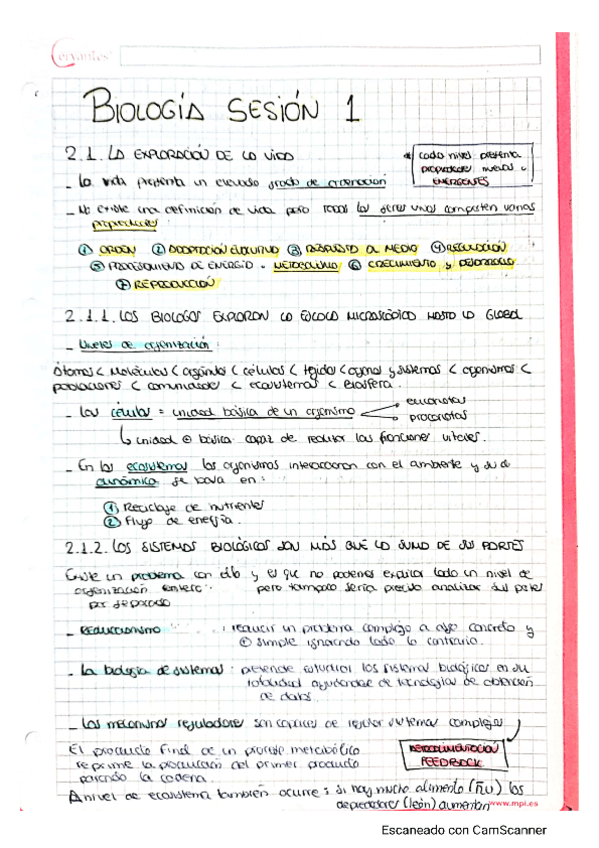 Cervantes
BIOLOGÍA SESIÓN 1
2.1. LA EXPLORACIÓN DE LA VIDA
* cada nivel presenta
propiedades nuevas o
EMERGENTES
- La vida presenta un elevado grado de ordenación
- No existe una definición de vida pero TODOS los seres vivos comparten varias
propiedades:
① ORDEN ② ADAPTACIÓN EVOLUTIVA ③ RESPUESTA AL MEDIO ④ REGULACIÓN
⑤ PROCESAMIENTO DE ENERGÍA - METABOLISMO ⑥ CRECIMIENTO y DESARROLLO
⑦ REPRODUCCIÓN
2.1.1. LOS BIÓLOGOS EXPLORAN LA ESCALA MICROSCÓPICA HASTA LA GLOBAL
- Niveles de organización:
Átomos < Moléculas < orgánulos < células < tejidos < órganos y sistemas < organismos <
poblaciones < comunidades < ecosistemas < Biosfera.
- Las células = unidad básica de un organismo
eucariotas
procariotas
↳ unidad ⊕ básica capaz de realizar las funciones vitales.
- En los ecosistemas los organismos interaccionan con el ambiente y su
dinámica se basa en:
① Reciclaje de nutrientes
② Flujo de energía.
2.1.2. LOS SISTEMAS BIOLÓGICOS SON MÁS QUE LA SUMA DE SUS PARTES
Existe un problema con ello y es que no podemos explicar todo un nivel de
organización entero pero tampoco sería preciso analizar sus partes
por separado
- REDUCCIONISMO: reducir un problema complejo a algo concreto y
⊕ simple ignorando todo lo contrario.
- La biología de sistemas: pretende estudiar los sistemas biológicos en su
totalidad ayudándose de tecnologías de obtención
de datos.
- Los mecanismos reguladores son capaces de regular sistemas complejos
El producto final de un proceso metabólico
reprime la producción del primer producto
parando la cadena.
RETROALIMENTACIÓN
FEEDBACK
A nivel de ecosistema también ocurre: si hay mucho alimento (ñu) los
depredadores (león) aumentan
www.mpi.es
Escaneado con CamScanner